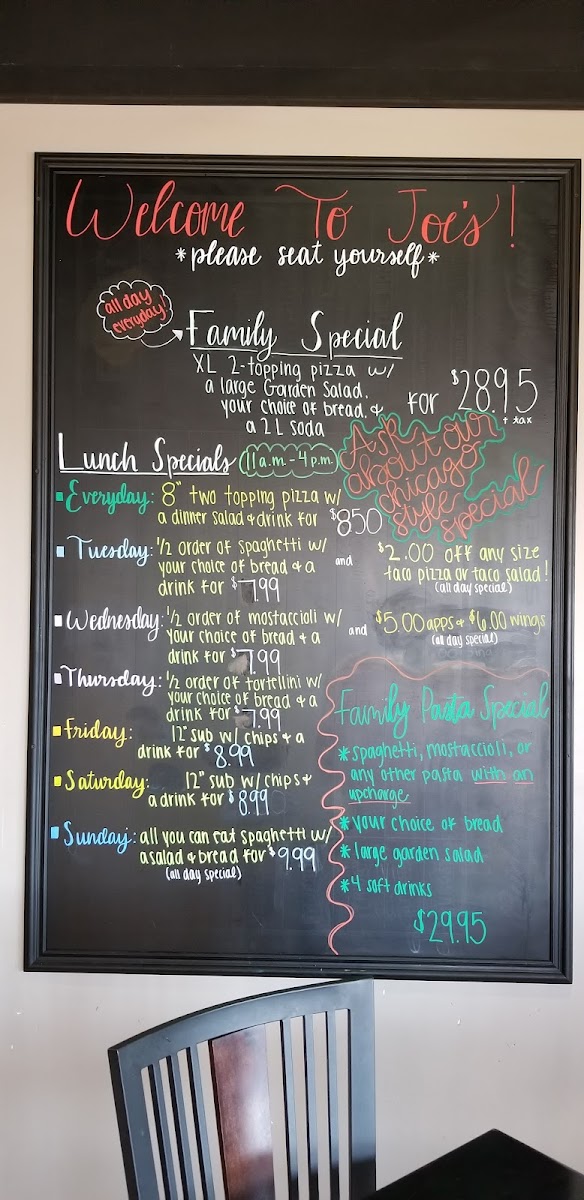 Welcome To Joe's!
*please seat yourself*
all day
everyday!
Family Special
XL 2-topping pizza w/
a large Garden Salad,
your choice of bread, &
a 2 L soda
for $28.95
+ tax
Ask
about our
chicago
style
special
Lunch Specials 11 a.m. - 4 p.m.
Everyday: 8" two topping pizza w/
a dinner salad & drink for $8.50
Tuesday: 1/2 order of spaghetti w/
your choice of bread & a
drink for $7.99
and
$2.00 off any size
taco pizza or taco salad!
(all day special)
Wednesday: 1/2 order of mostaccioli w/
your choice of bread & a
drink for $7.99
and
$5.00 apps & $6.00 wings
(all day special)
Thursday: 1/2 order of tortellini w/
your choice of bread & a
drink for $7.99
Friday: 12" sub w/ chips & a
drink for $8.99
Saturday: 12" sub w/ chips &
a drink for $8.99
Sunday: all you can eat spaghetti w/
a salad & bread for $9.99
(all day special)
Family Pasta Special
*spaghetti, mostaccioli, or
any other pasta with an
upcharge
*your choice of bread
*large garden salad
*4 soft drinks
$29.95